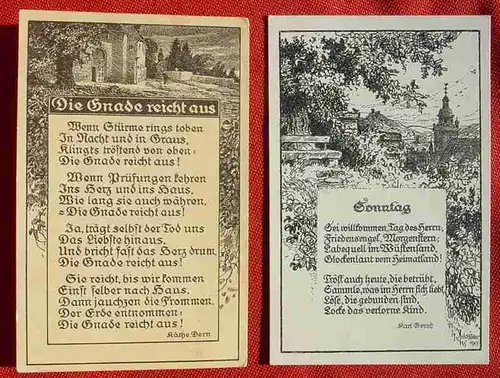 Die Gnade reicht aus
Wenn Stürme rings toben
In Nacht und in Graus,
Klingts tröstend von oben:
Die Gnade reicht aus!
Wenn Prüfungen kehren
Ins Herz und ins Haus,
Wie lang sie auch währen.
Die Gnade reicht aus!
Ja, trägt selbst der Tod uns
Das Liebste hinaus,
Und bricht fast das Herz drum,
Die Gnade reicht aus!
Sie reicht, bis wir kommen
Einst selber nach Haus,
Dann jauchzen die Frommen,
Der Erde entnommen:
Die Gnade reicht aus!
Käthe Dorn
Sonntag
Sei willkommen, Tag des Herrn,
Friedensengel, Morgenstern,
Labequell im Wüstensand,
Glockenlaut vom Heimatland!
Tröst auch heute, die betrübt,
Sammle, was im Herrn sich liebt,
Löse, die gebunden sind,
Locke das verlorne Kind.
Karl Gerok